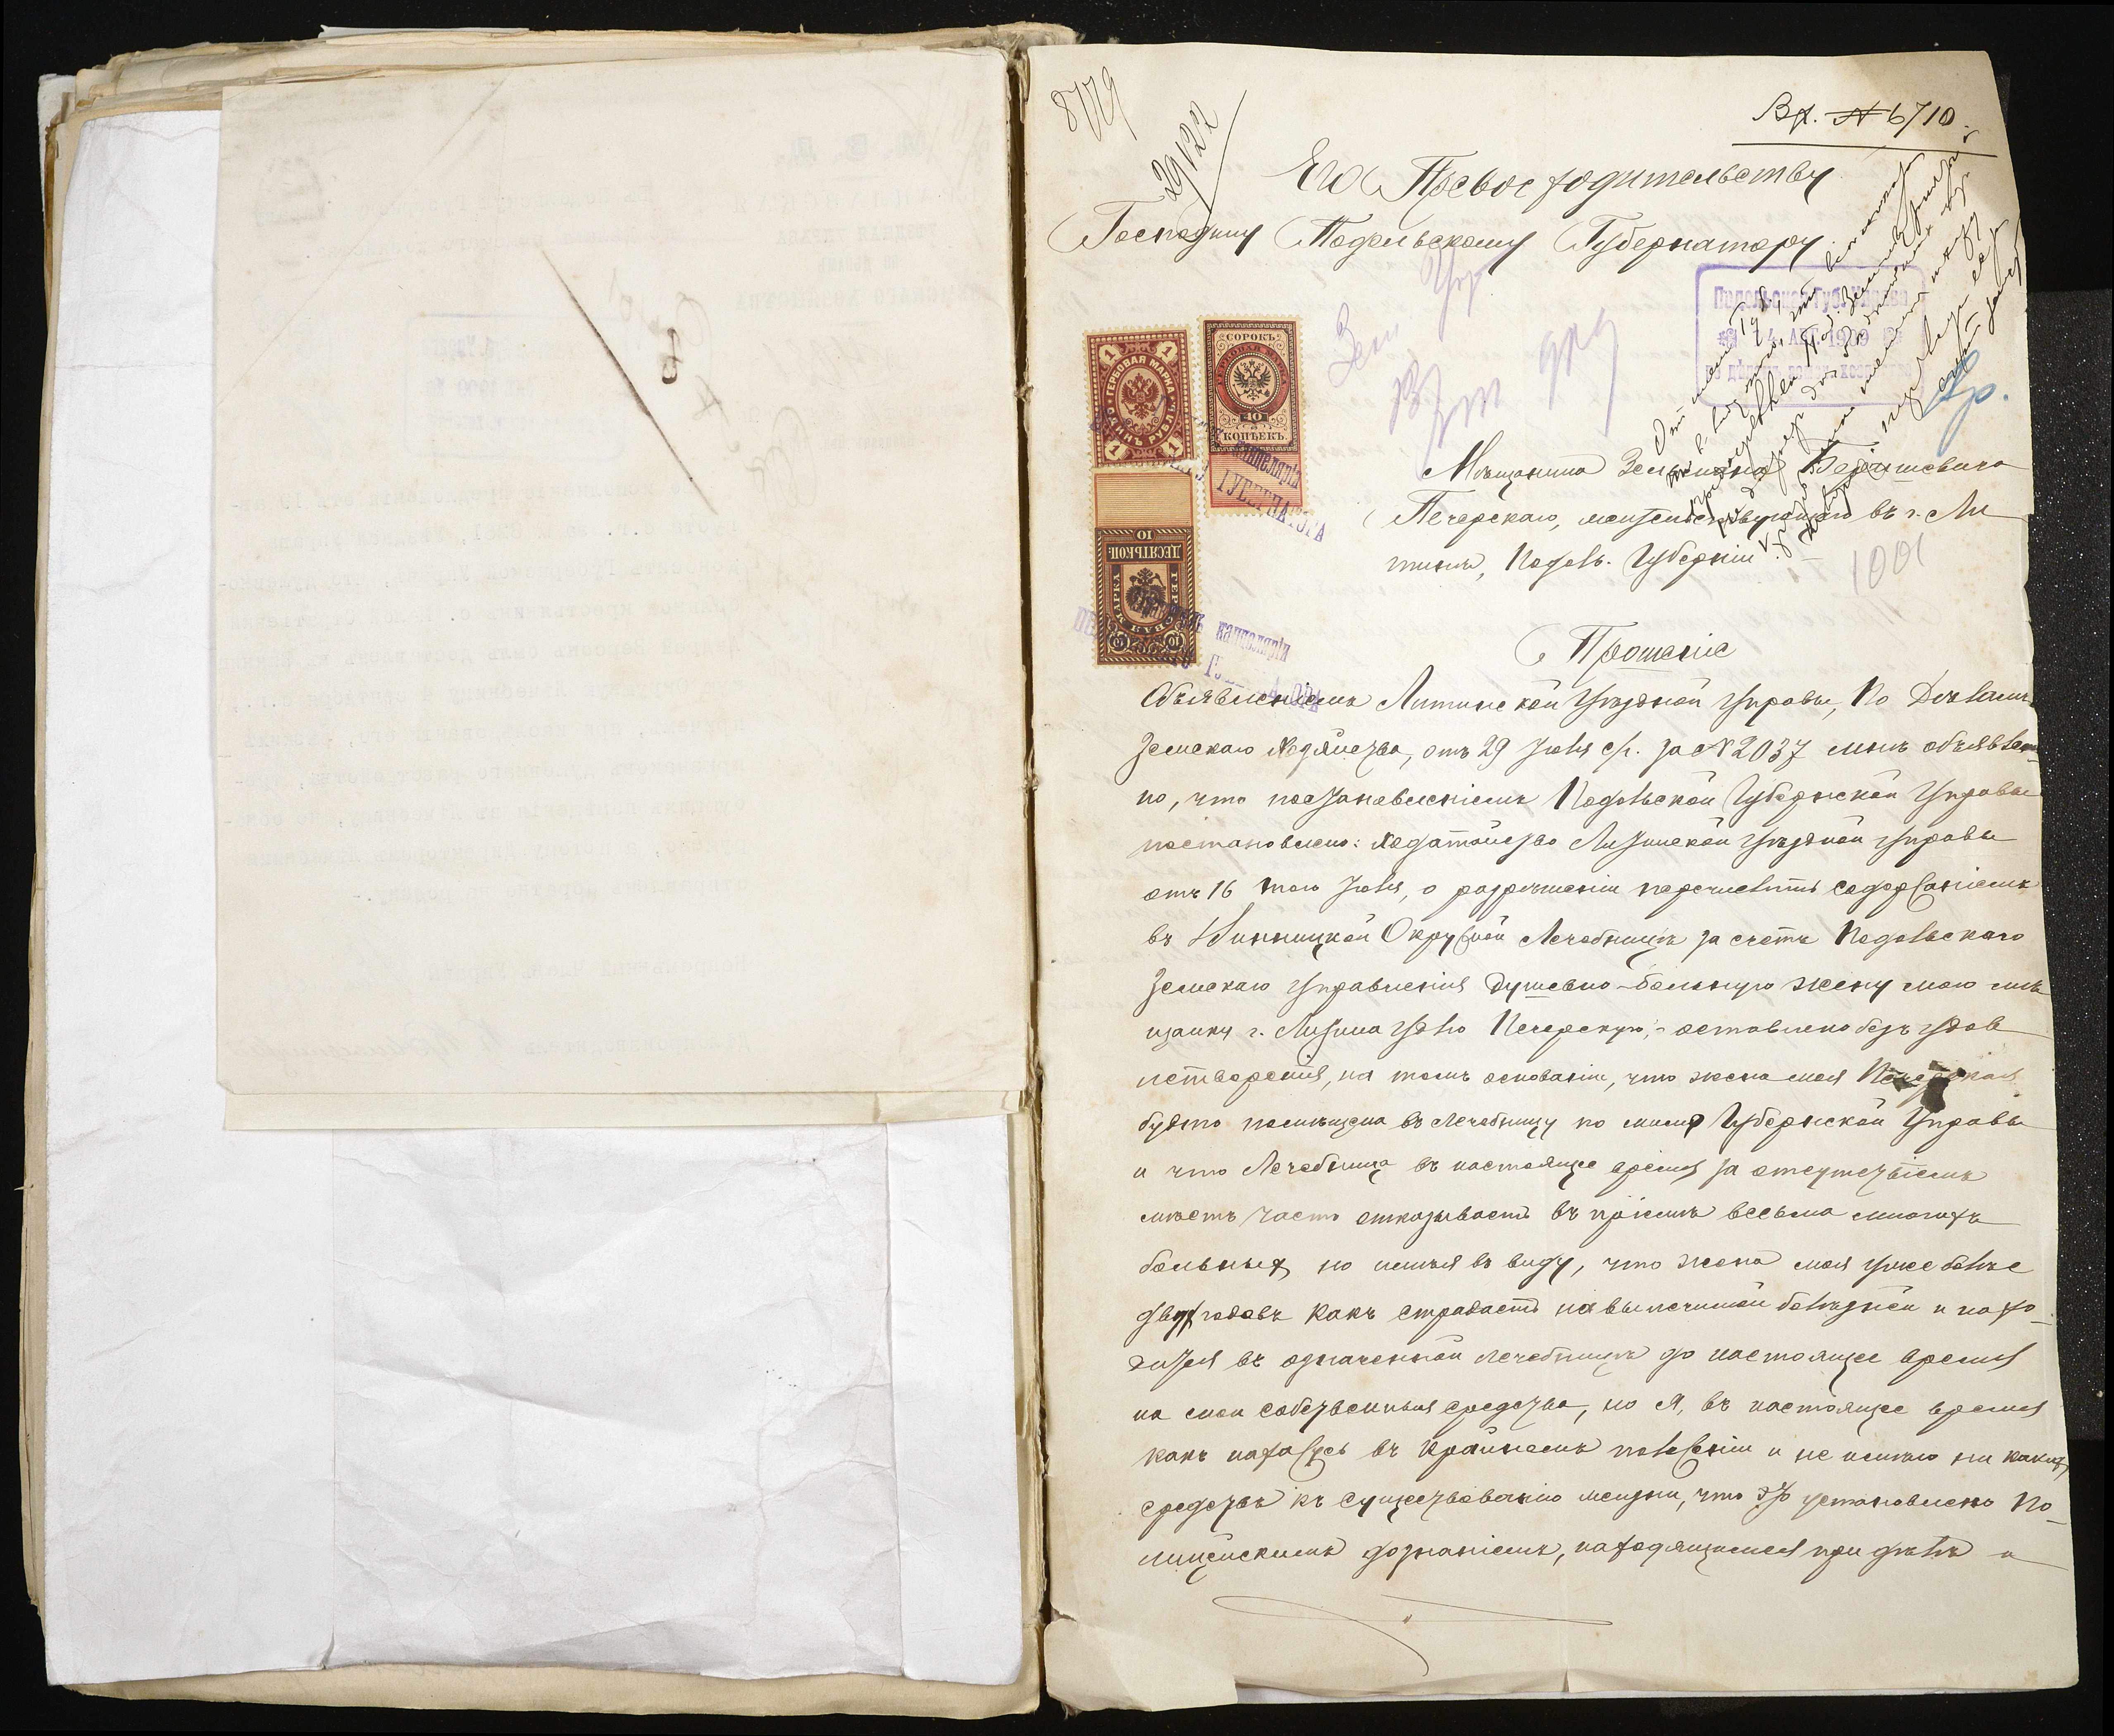 8779
29122
Вх. N 6710.
Его Превосходительству
Господину Подольскому Губернатору.
Подольская Губ. Управа
4 АВГ 1909
по дѣламъ земск. хозяйства
1
ГЕРБОВАЯ МАРКА
ОДИНЪ РУБЛЬ
СОРОКЪ
ГЕРБОВАЯ МАРКА
40
КОПѢЕКЪ
канцелярія
ГУБЕРНАТОРА
10
ДЕСЯТЬ КОП.
ГЕРБОВАЯ МАРКА
канцелярія
Мѣщанина Зельмана
Печерскаго, жительствующаго въ г. Ли
тинѣ, Подоль. Губерніи
Прошеніе
Объявленіемъ Литинской Уѣздной Управы, По Дѣламъ
Земскаго Хозяйства, отъ 29 Іюля с/г. за N 2037 мнѣ объявле-
но, что постановленіемъ Подольской Губернской Управы
постановлено: ходатайство Литинской Уѣздной Управы
отъ 16 того Іюля, о разрѣшеніи перечислить содержаніемъ
въ Винницкой Окружной Лечебницѣ за счетъ Подольскаго
Земскаго Управленія душевно-больную жену мою мѣ
щанку г. Литина Печерскую, оставлено безъ удов
летворенія, на томъ основаніи, что жена моя Печерская
будто помѣщена въ Лечебницу по Губернской Управы
и что Лечебница въ настоящее время за отсутствіемъ
мѣстъ часто отказываетъ въ пріемѣ весьма многихъ
больныхъ, но имѣя въ виду, что жена моя уже болѣе
двухъ годовъ какъ страдаетъ болѣзней и нахо-
дится въ означенной лечебницѣ до настоящее время
на мои собственныя средства, но я, въ настоящее время
какъ нахожусь въ крайнемъ положеніи и не имѣю ни какихъ
средствъ къ существованію жизни, что установлено По-
лицейскимъ дознаніемъ, находящимися при дѣлѣ и